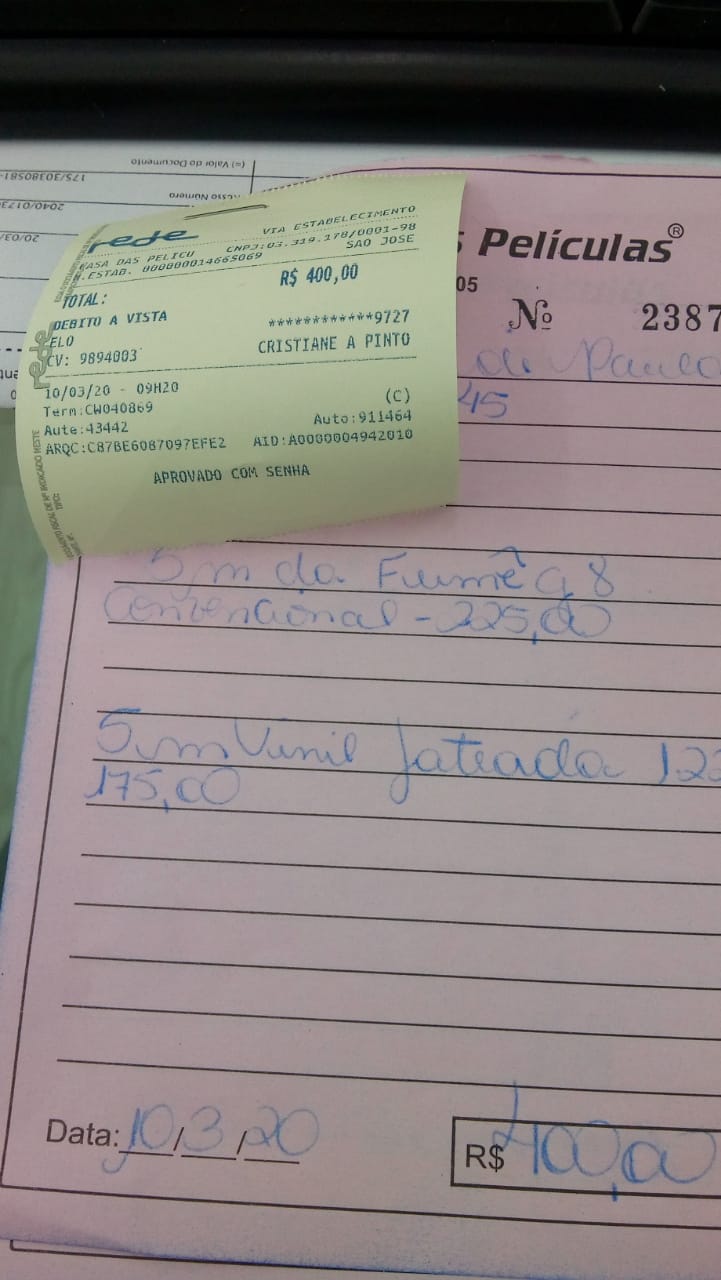 (=) Valor do Documento
175/30380581-
Nosso Número
2040/0173
20/03/
rede
VIA ESTABELECIMENTO
CASA DAS PELICU CNPJ:03.319.178/0001-98
.ESTAB. 000000014665069 SAO JOSE
TOTAL: R$ 400,00
DEBITO A VISTA
ELO ************9727
CV: 9894003 CRISTIANE A PINTO
10/03/20 - 09H20
Term:CW040869 (C)
Aute:43442 Auto:911464
ARQC:C87BE6087097EFE2 AID:A0000004942010
APROVADO COM SENHA
rede
s Películas®
05
Nº 2387
de Paula
45
5m da Fumê G 8
Convencional - 225,00
5m Vinil Jateada 122
175,00
Data: 10/3/20
R$ 400,00